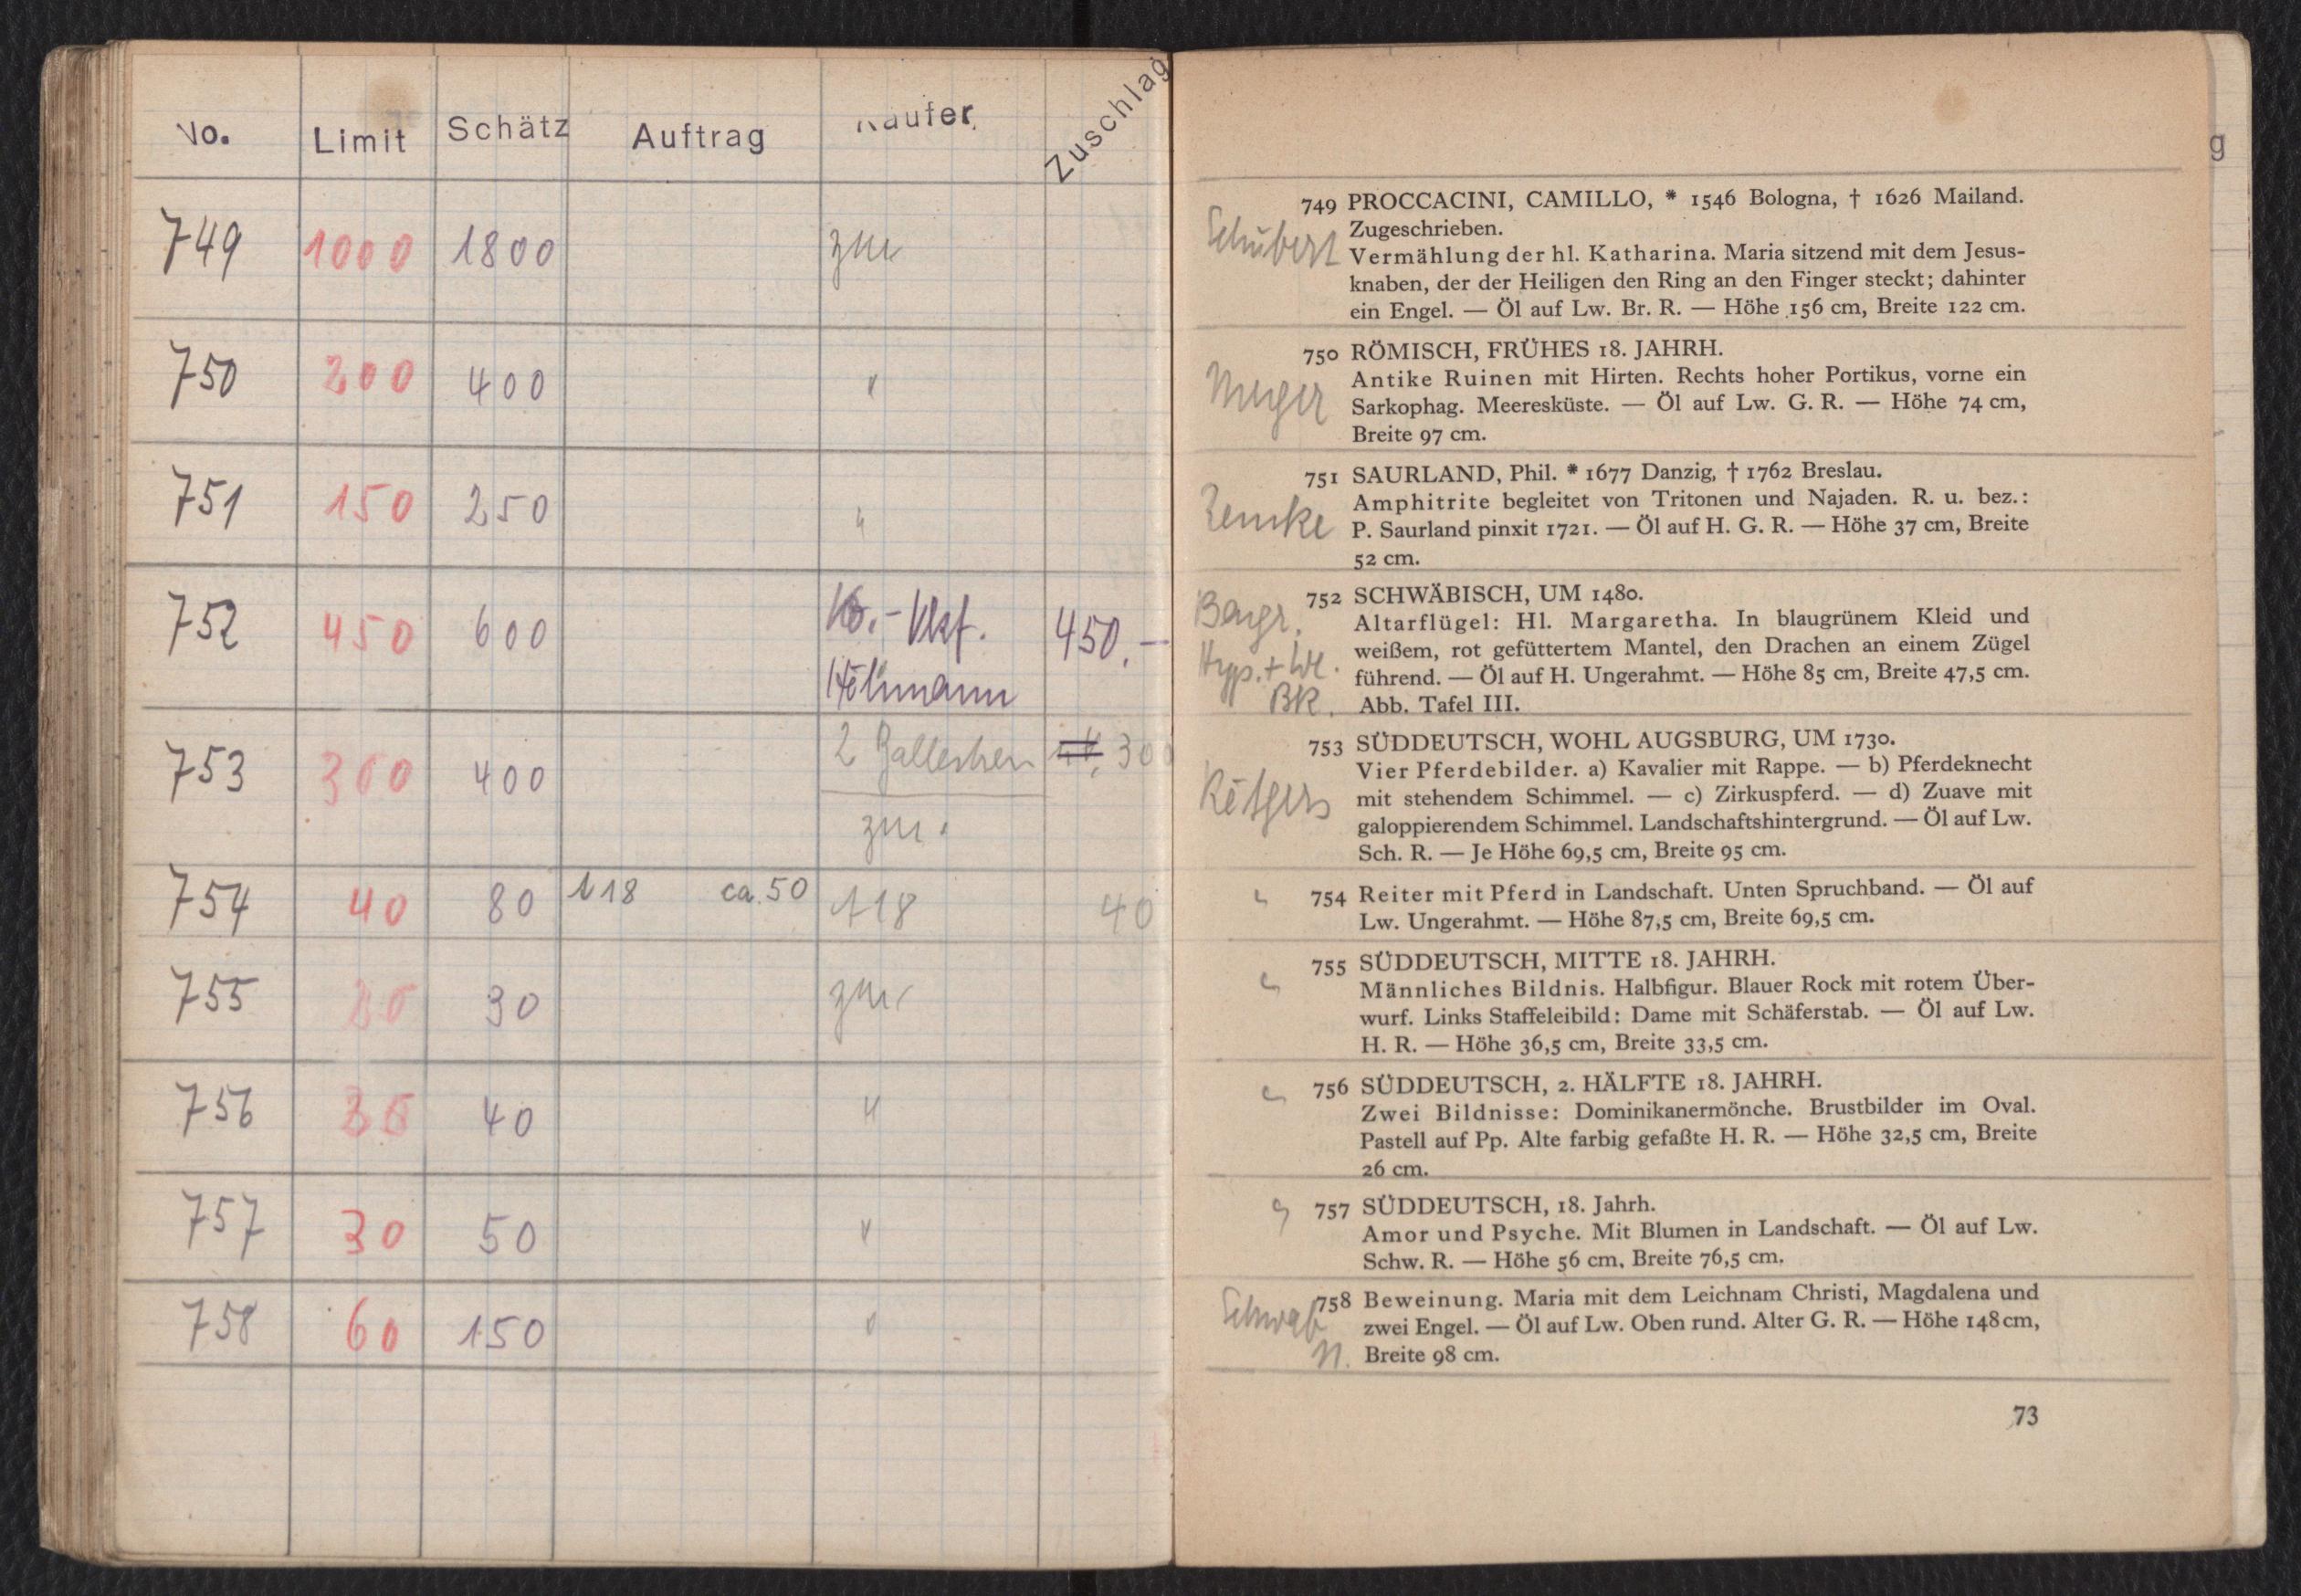 No. Limit Schätz Auftrag Käufer Zuschlag
749 1000 1800 zur
750 200 400 "
751 150 250 "
752 450 600 450.-
753 300 400 2 300
zur.
754 40 80 ca. 50 40
755 30 zur
756 40 "
757 30 50 "
758 60 150 "
g
749 PROCCACINI, CAMILLO, * 1546 Bologna, † 1626 Mailand.
Zugeschrieben.
Schubert
Vermählung der hl. Katharina. Maria sitzend mit dem Jesus-
knaben, der der Heiligen den Ring an den Finger steckt; dahinter
ein Engel. — Öl auf Lw. Br. R. — Höhe 156 cm, Breite 122 cm.
750 RÖMISCH, FRÜHES 18. JAHRH.
Meyer
Antike Ruinen mit Hirten. Rechts hoher Portikus, vorne ein
Sarkophag. Meeresküste. — Öl auf Lw. G. R. — Höhe 74 cm,
Breite 97 cm.
751 SAURLAND, Phil. * 1677 Danzig, † 1762 Breslau.
Amphitrite begleitet von Tritonen und Najaden. R. u. bez.:
P. Saurland pinxit 1721. — Öl auf H. G. R. — Höhe 37 cm, Breite
52 cm.
752 SCHWÄBISCH, UM 1480.
Bayr.
Altarflügel: Hl. Margaretha. In blaugrünem Kleid und
weißem, rot gefüttertem Mantel, den Drachen an einem Zügel
Hyp. +
führend. — Öl auf H. Ungerahmt. — Höhe 85 cm, Breite 47,5 cm.
BK.
Abb. Tafel III.
753 SÜDDEUTSCH, WOHL AUGSBURG, UM 1730.
Vier Pferdebilder. a) Kavalier mit Rappe. — b) Pferdeknecht
mit stehendem Schimmel. — c) Zirkuspferd. — d) Zuave mit
galoppierendem Schimmel. Landschaftshintergrund. — Öl auf Lw.
Sch. R. — Je Höhe 69,5 cm, Breite 95 cm.
754 Reiter mit Pferd in Landschaft. Unten Spruchband. — Öl auf
Lw. Ungerahmt. — Höhe 87,5 cm, Breite 69,5 cm.
755 SÜDDEUTSCH, MITTE 18. JAHRH.
Männliches Bildnis. Halbfigur. Blauer Rock mit rotem Über-
wurf. Links Staffeleibild: Dame mit Schäferstab. — Öl auf Lw.
H. R. — Höhe 36,5 cm, Breite 33,5 cm.
756 SÜDDEUTSCH, 2. HÄLFTE 18. JAHRH.
Zwei Bildnisse: Dominikanermönche. Brustbilder im Oval.
Pastell auf Pp. Alte farbig gefaßte H. R. — Höhe 32,5 cm, Breite
26 cm.
757 SÜDDEUTSCH, 18. Jahrh.
Amor und Psyche. Mit Blumen in Landschaft. — Öl auf Lw.
Schw. R. — Höhe 56 cm, Breite 76,5 cm.
758 Beweinung. Maria mit dem Leichnam Christi, Magdalena und
Schwab
zwei Engel. — Öl auf Lw. Oben rund. Alter G. R. — Höhe 148 cm,
N.
Breite 98 cm.
73